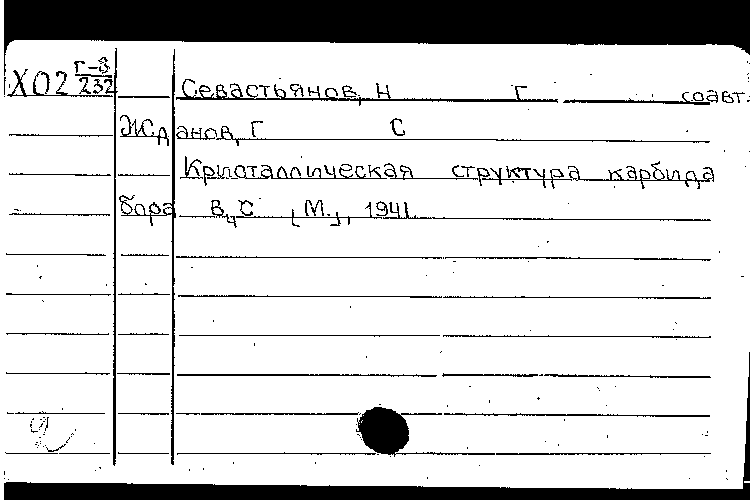 Х02 Г-8/232 Севастьянов, Н Г соавт.
Жданов, Г С
Кристаллическая структура карбида
бора B₄C [М.], 1941.
2